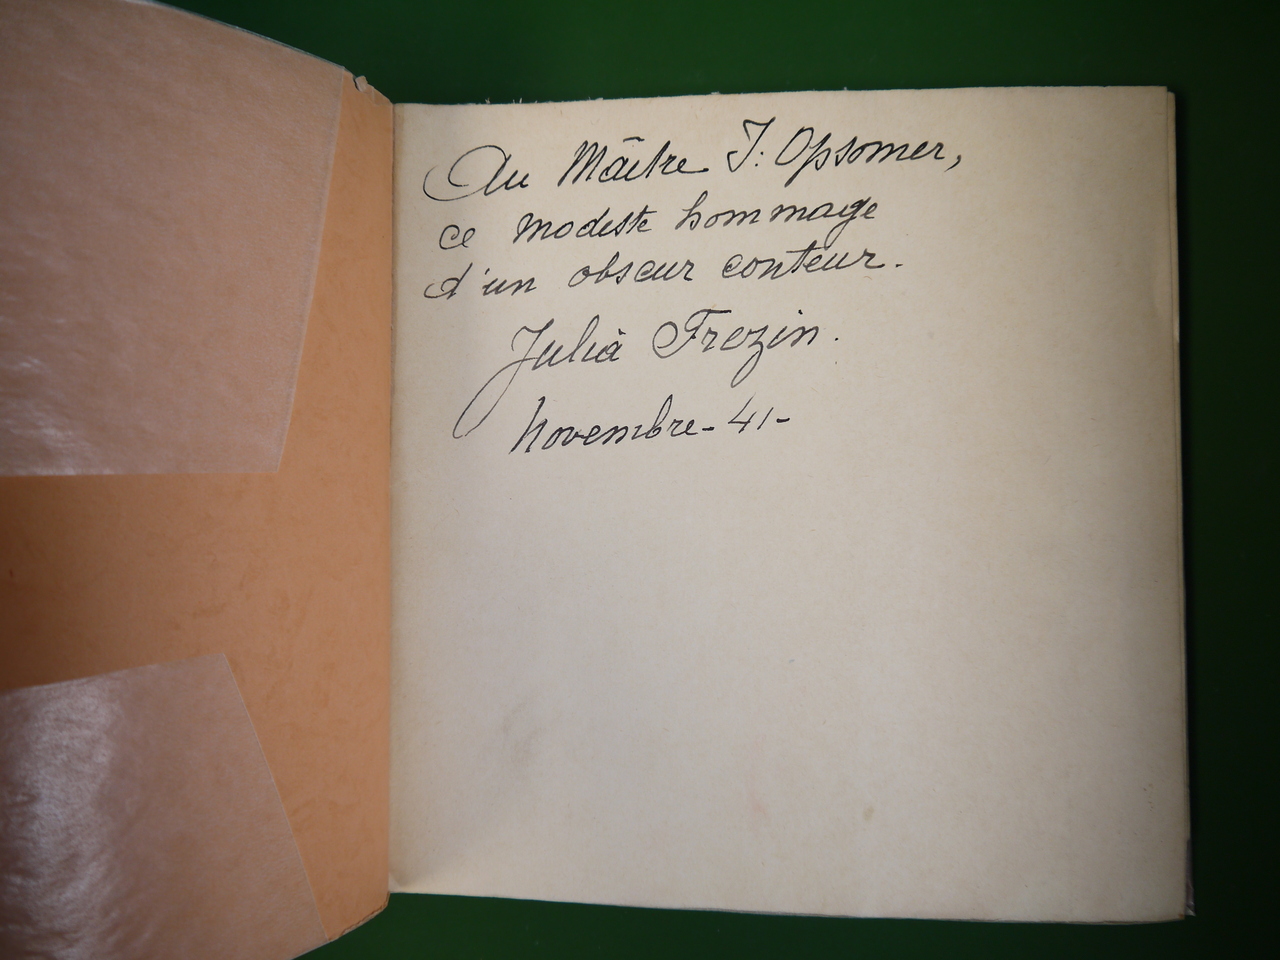 Au Maître I. Opsomer,
ce modeste hommage
d'un obscur conteur.
Julia Frezin.
Novembre - 41 -